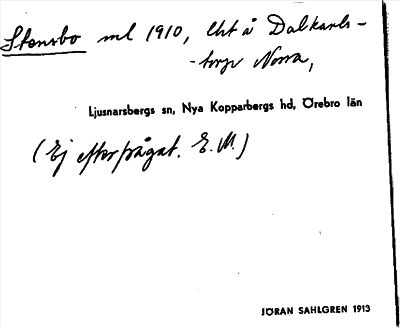 Stensbo ml 1910, lht å Dalkarls-
-torp Norra,
Ljusnarsbergs sn, Nya Kopparbergs hd, Örebro län
(Ej efterfrågat. E. M.)
JÖRAN SAHLGREN 1913